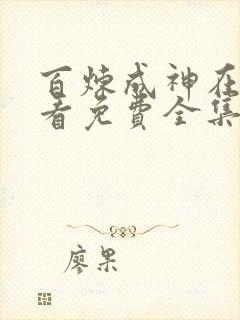 百炼成神在
看免費全集
廖果